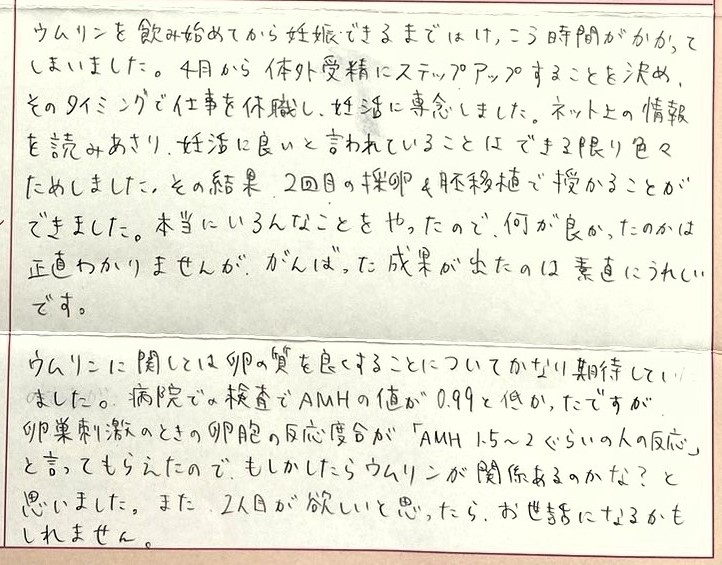 ウムリンを飲み始めてから妊娠できるまではけっこう時間がかかって
しまいました。4月から体外受精にステップアップすることを決め、
そのタイミングで仕事を休職し、妊活に専念しました。ネット上の情報
を読みあさり、妊活に良いと言われていることはできる限り色々
ためしました。その結果、2回目の採卵&胚移植で授かることが
できました。本当にいろんなことをやったので、何が良かったのかは
正直わかりませんが、がんばった成果が出たのは素直にうれしい
です。
ウムリンに関しては卵の質を良くすることについてかなり期待してい
ました。病院での検査でAMHの値が0.99と低かったですが、
卵巣刺激のときの卵胞の反応度合が「AMH 1.5〜2ぐらいの人の反応」
と言ってもらえたので、もしかしたらウムリンが関係あるのかな?と
思いました。また、2人目が欲しいと思ったら、お世話になるかも
しれません。